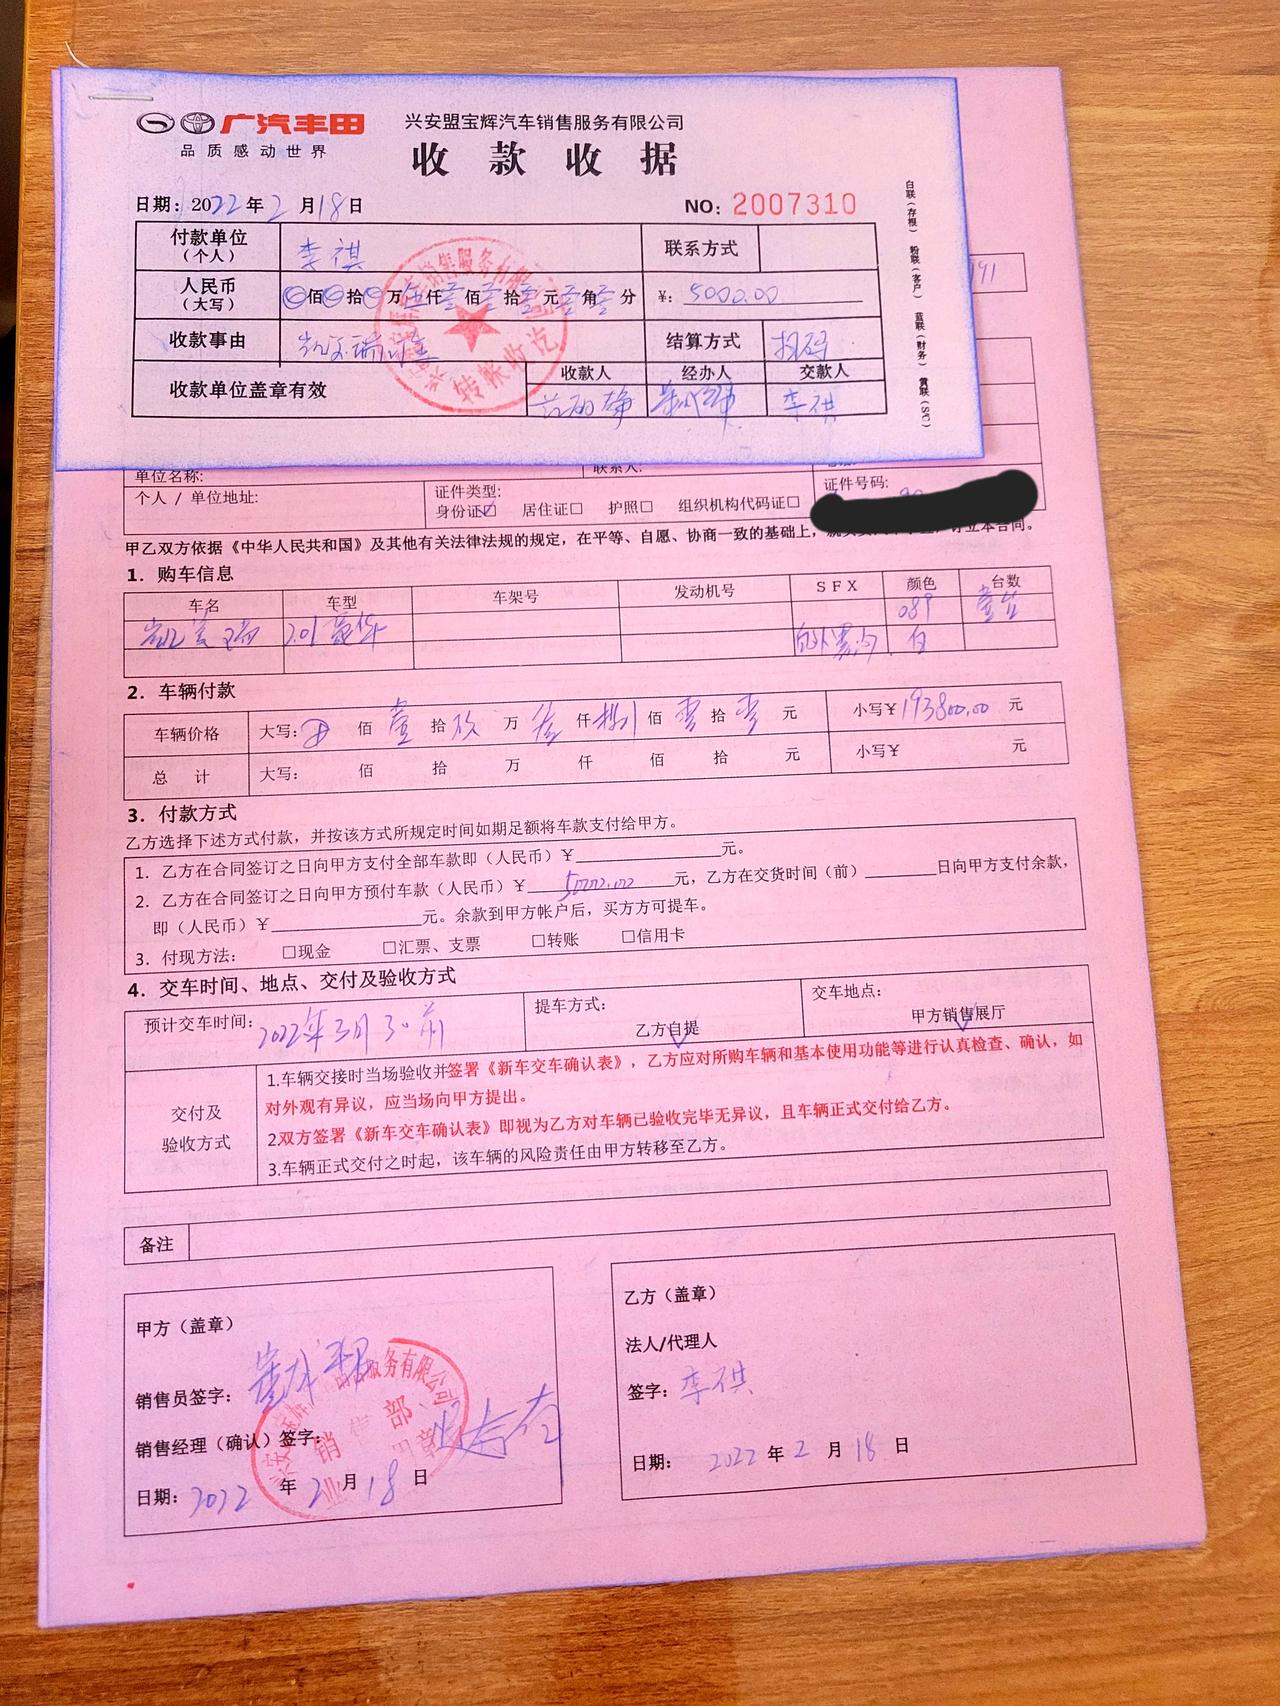 广汽丰田
品质感动世界
兴安盟宝辉汽车销售服务有限公司
收款收据
日期：2022年2月18日
NO：2007310
白联（存根） 粉联（客户） 蓝联（财务） 黄联（SC）
付款单位（个人） 李祺 联系方式
人民币（大写） 佰 拾 万伍仟零佰零拾零元零角零分 ¥：5000.00
收款事由 凯美瑞订金 结算方式 扫码
收款单位盖章有效 收款人 经办人 交款人
李祺
转帐收讫
191
单位名称： 联系人：
个人 / 单位地址： 证件类型： 证件号码：
身份证☑ 居住证□ 护照□ 组织机构代码证□
甲乙双方依据《中华人民共和国》及其他有关法律法规的规定，在平等、自愿、协商一致的基础上，订立本合同。
1．购车信息
车名 车型 车架号 发动机号 SFX 颜色 台数
凯美瑞 2.0L豪华 089 壹台
白
2．车辆付款
车辆价格 大写： 佰壹拾玖万叁仟捌佰零拾零元 小写¥193800.00元
总计 大写： 佰 拾 万 仟 佰 拾 元 小写¥ 元
3．付款方式
乙方选择下述方式付款，并按该方式所规定时间如期足额将车款支付给甲方。
1．乙方在合同签订之日向甲方支付全部车款即（人民币）¥ 元。
2．乙方在合同签订之日向甲方预付车款（人民币）¥5000.00元，乙方在交货时间（前） 日向甲方支付余款，
即（人民币）¥ 元。余款到甲方帐户后，买方方可提车。
3．付现方法： □现金 □汇票、支票 □转账 □信用卡
4．交车时间、地点、交付及验收方式
预计交车时间：2022年3月30前 提车方式： 乙方自提 交车地点： 甲方销售展厅
交付及验收方式
1.车辆交接时当场验收并签署《新车交车确认表》，乙方应对所购车辆和基本使用功能等进行认真检查、确认，如
对外观有异议，应当场向甲方提出。
2双方签署《新车交车确认表》即视为乙方对车辆已验收完毕无异议，且车辆正式交付给乙方。
3.车辆正式交付之时起，该车辆的风险责任由甲方转移至乙方。
备注
甲方（盖章）
销售员签字：
销售经理（确认）签字：
日期：2022年2月18日
乙方（盖章）
法人/代理人
签字：李祺
日期：2022年2月18日